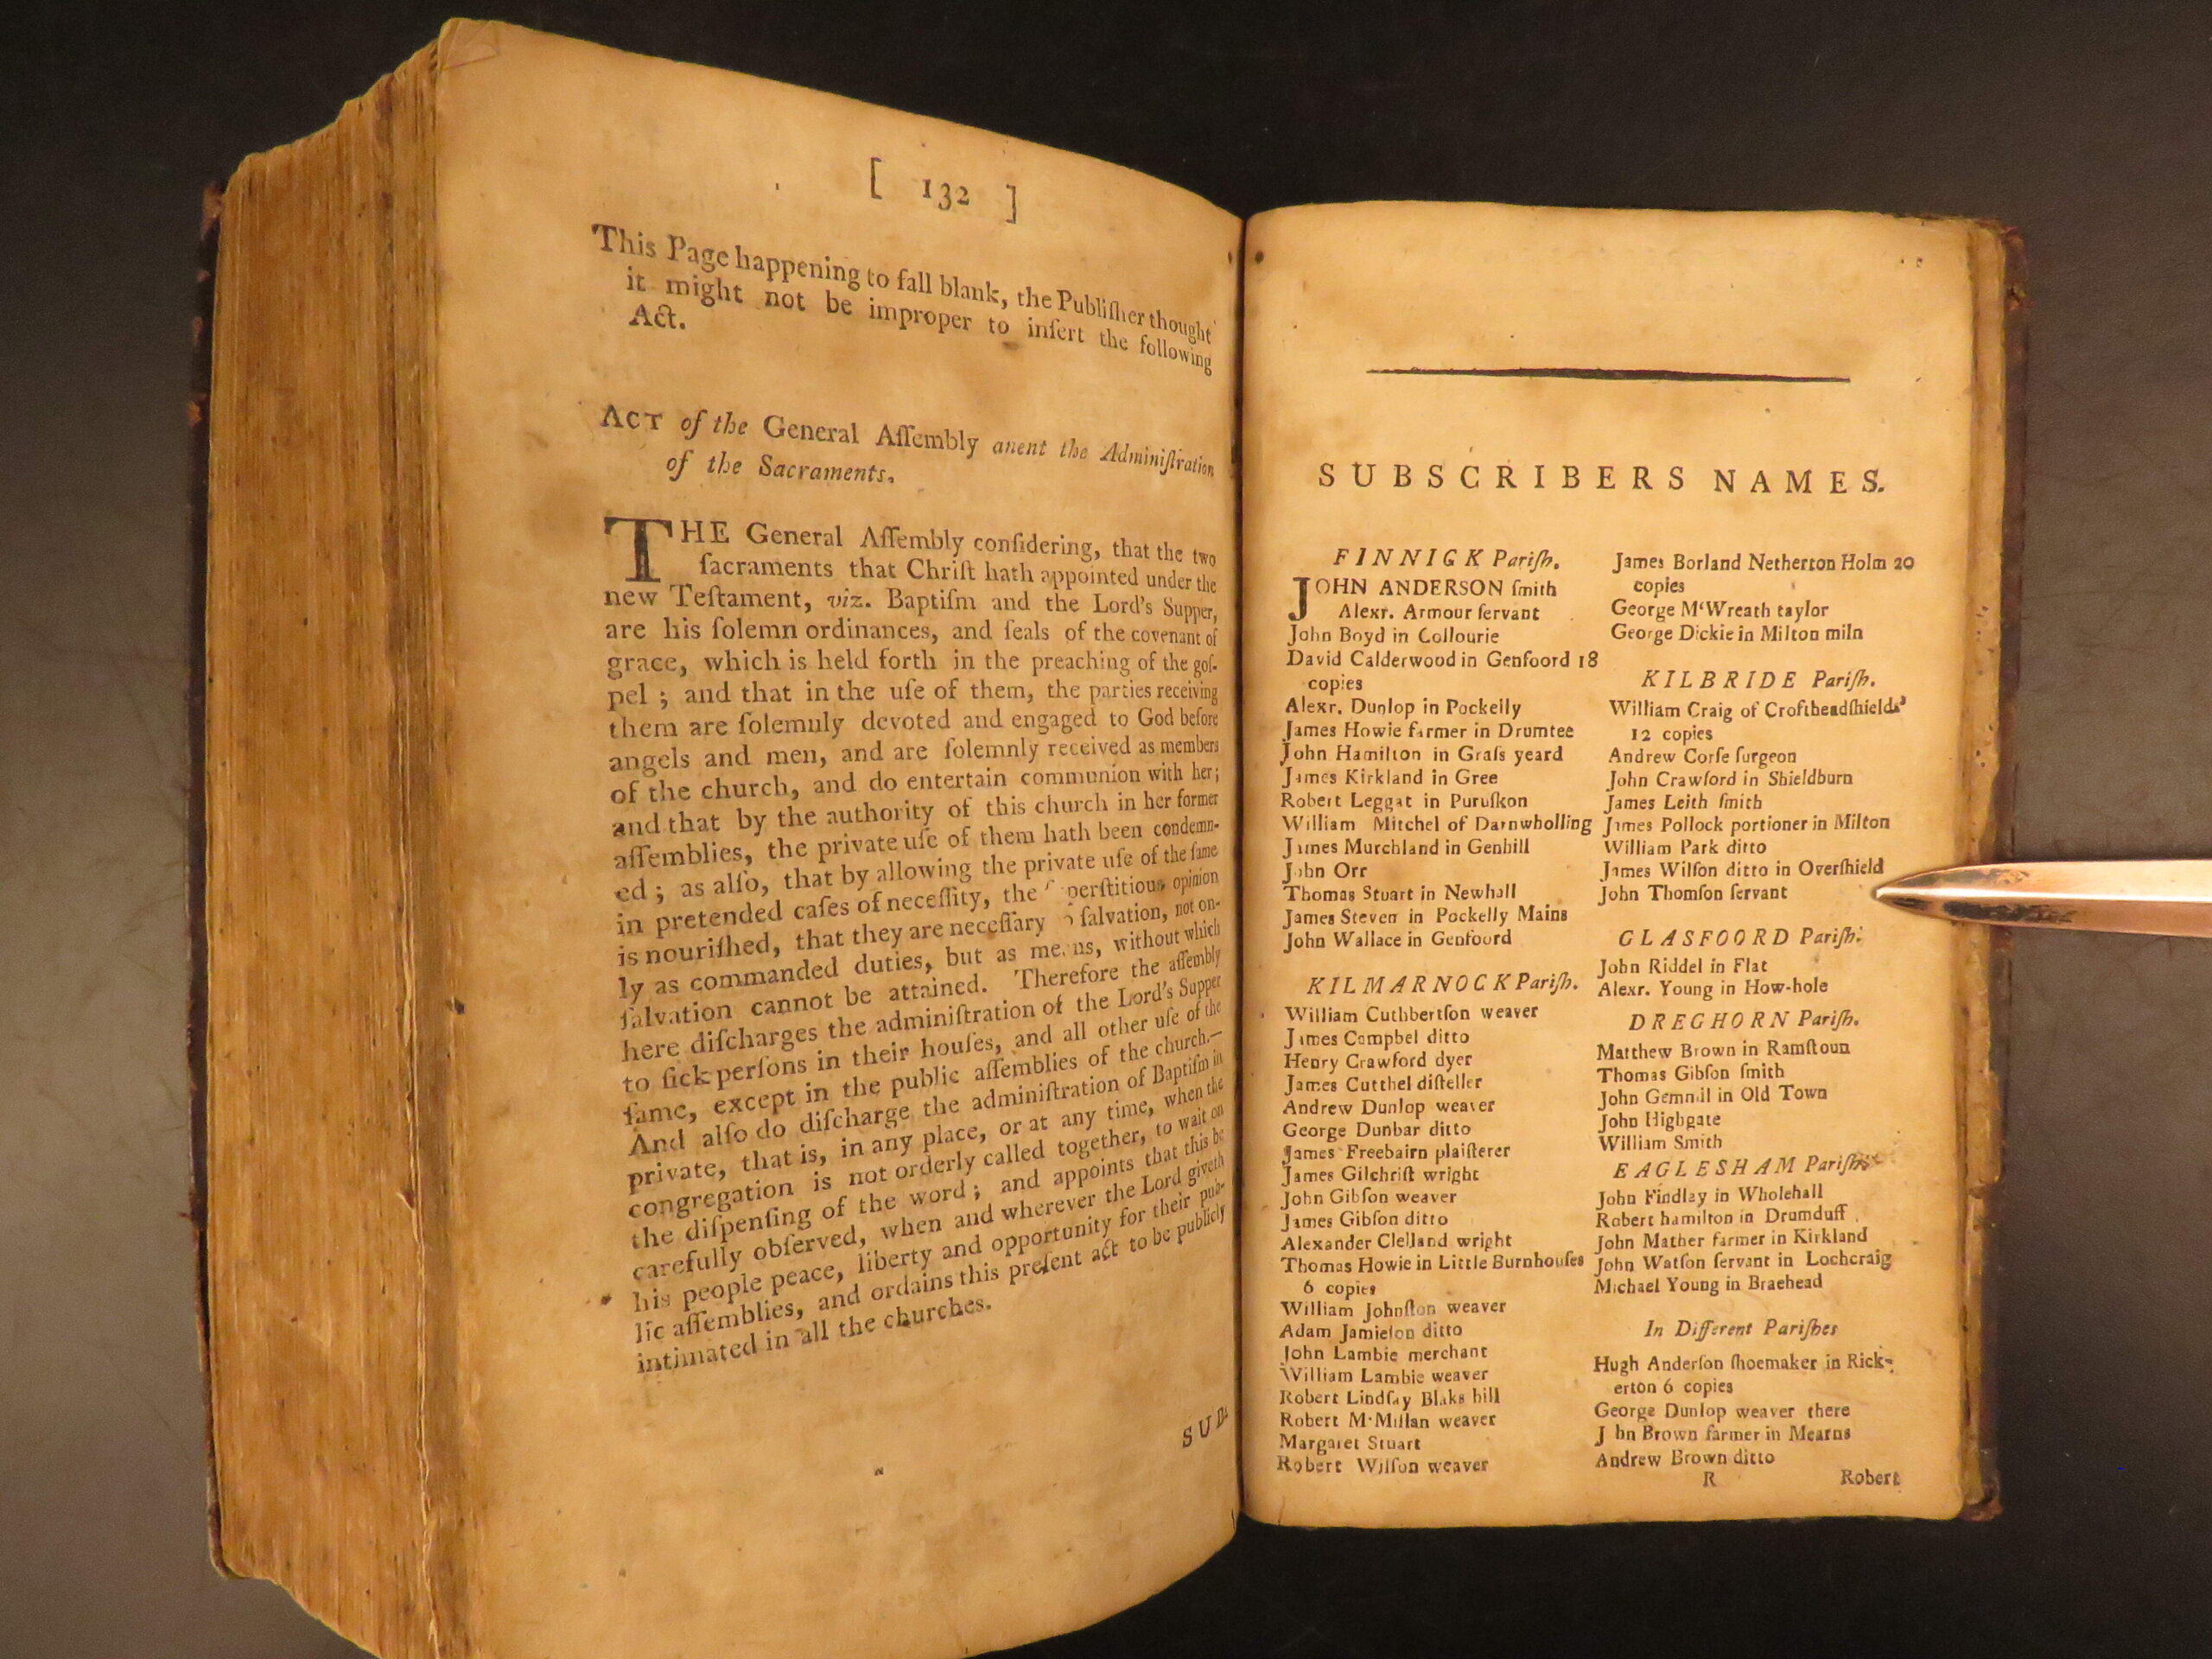 [ 132 ]
This Page happening to fall blank, the Publiſher thought
it might not be improper to inſert the following
Act.
ACT of the General Aſſembly anent the Adminiſtration
of the Sacraments.
THE General Aſſembly conſidering, that the two
ſacraments that Chriſt hath appointed under the
new Teſtament, viz. Baptiſm and the Lord's Supper,
are his ſolemn ordinances, and ſeals of the covenant of
grace, which is held forth in the preaching of the goſ-
pel ; and that in the uſe of them, the parties receiving
them are ſolemnly devoted and engaged to God before
angels and men, and are ſolemnly received as members
of the church, and do entertain communion with her ;
and that by the authority of this church in her former
aſſemblies, the private uſe of them hath been condemn-
ed ; as alſo, that by allowing the private uſe of the ſame
in pretended caſes of neceſſity, the perſtitious opinion
is nouriſhed, that they are neceſſary ſalvation, not on-
ly as commanded duties, but as means, without which
ſalvation cannot be attained. Therefore the aſſembly
here diſcharges the adminiſtration of the Lord's Supper
to ſick perſons in their houſes, and all other uſe of the
ſame, except in the public aſſemblies of the church.—
And alſo do diſcharge the adminiſtration of Baptiſm in
private, that is, in any place, or at any time, when the
congregation is not orderly called together, to wait on
the diſpenſing of the word ; and appoints that this be
carefully obſerved, when and wherever the Lord giveth
his people peace, liberty and opportunity for their pub-
lic aſſemblies, and ordains this preſent act to be publicly
intimated in all the churches.
SUB-
SUBSCRIBERS NAMES.
FINNICK Pariſh.
JOHN ANDERSON ſmith
Alexr. Armour ſervant
John Boyd in Collourie
David Calderwood in Genfoord 18
copies
Alexr. Dunlop in Pockelly
James Howie farmer in Drumtee
John Hamilton in Graſs yeard
James Kirkland in Gree
Robert Leggat in Puruſkon
William Mitchel of Darnwholling
James Murchland in Genhill
John Orr
Thomas Stuart in Newhall
James Steven in Pockelly Mains
John Wallace in Genfoord
KILMARNOCK Pariſh.
William Cuthbertſon weaver
James Campbel ditto
Henry Crawford dyer
James Cutthel diſteller
Andrew Dunlop weaver
George Dunbar ditto
James Freebairn plaiſterer
James Gilchriſt wright
John Gibſon weaver
James Gibſon ditto
Alexander Clelland wright
Thomas Howie in Little Burnhouſes
6 copies
William Johnſton weaver
Adam Jamieſon ditto
John Lambie merchant
William Lambie weaver
Robert Lindſay Blaks hill
Robert M'Millan weaver
Margaret Stuart
Robert Wilſon weaver
James Borland Netherton Holm 20
copies
George M'Wreath taylor
George Dickie in Milton miln
KILBRIDE Pariſh.
William Craig of Croftheadſhields
12 copies
Andrew Corſe ſurgeon
John Crawford in Shieldburn
James Leith ſmith
James Pollock portioner in Milton
William Park ditto
James Wilſon ditto in Overſhield
John Thomſon ſervant
GLASFOORD Pariſh.
John Riddel in Flat
Alexr. Young in How-hole
DREGHORN Pariſh.
Matthew Brown in Ramſtoun
Thomas Gibſon ſmith
John Gemmil in Old Town
John Highgate
William Smith
EAGLESHAM Pariſh.
John Findlay in Wholehall
Robert hamilton in Drumduff
John Mather farmer in Kirkland
John Watſon ſervant in Lochcraig
Michael Young in Braehead
In Different Pariſhes
Hugh Anderſon ſhoemaker in Rick-
erton 6 copies
George Dunlop weaver there
John Brown farmer in Mearns
Andrew Brown ditto
R Robert